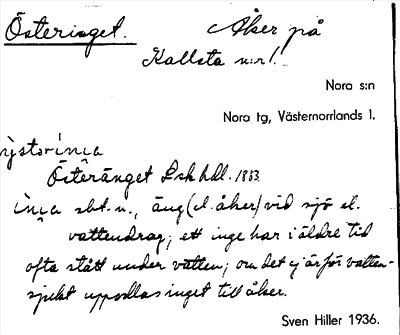 Österinget.
Åker på
Kallsta n:r 1.
Nora s:n
Nora tg, Västernorrlands l.
Österänget Lskhdl. 1883
inga sbt. n., äng (el. åker) vid sjö el.
vattendrag; ett inge har i äldre tid
ofta stått under vatten; om det ej är för vatten-
sjukt uppodlas inget till åker.
Sven Hiller 1936.